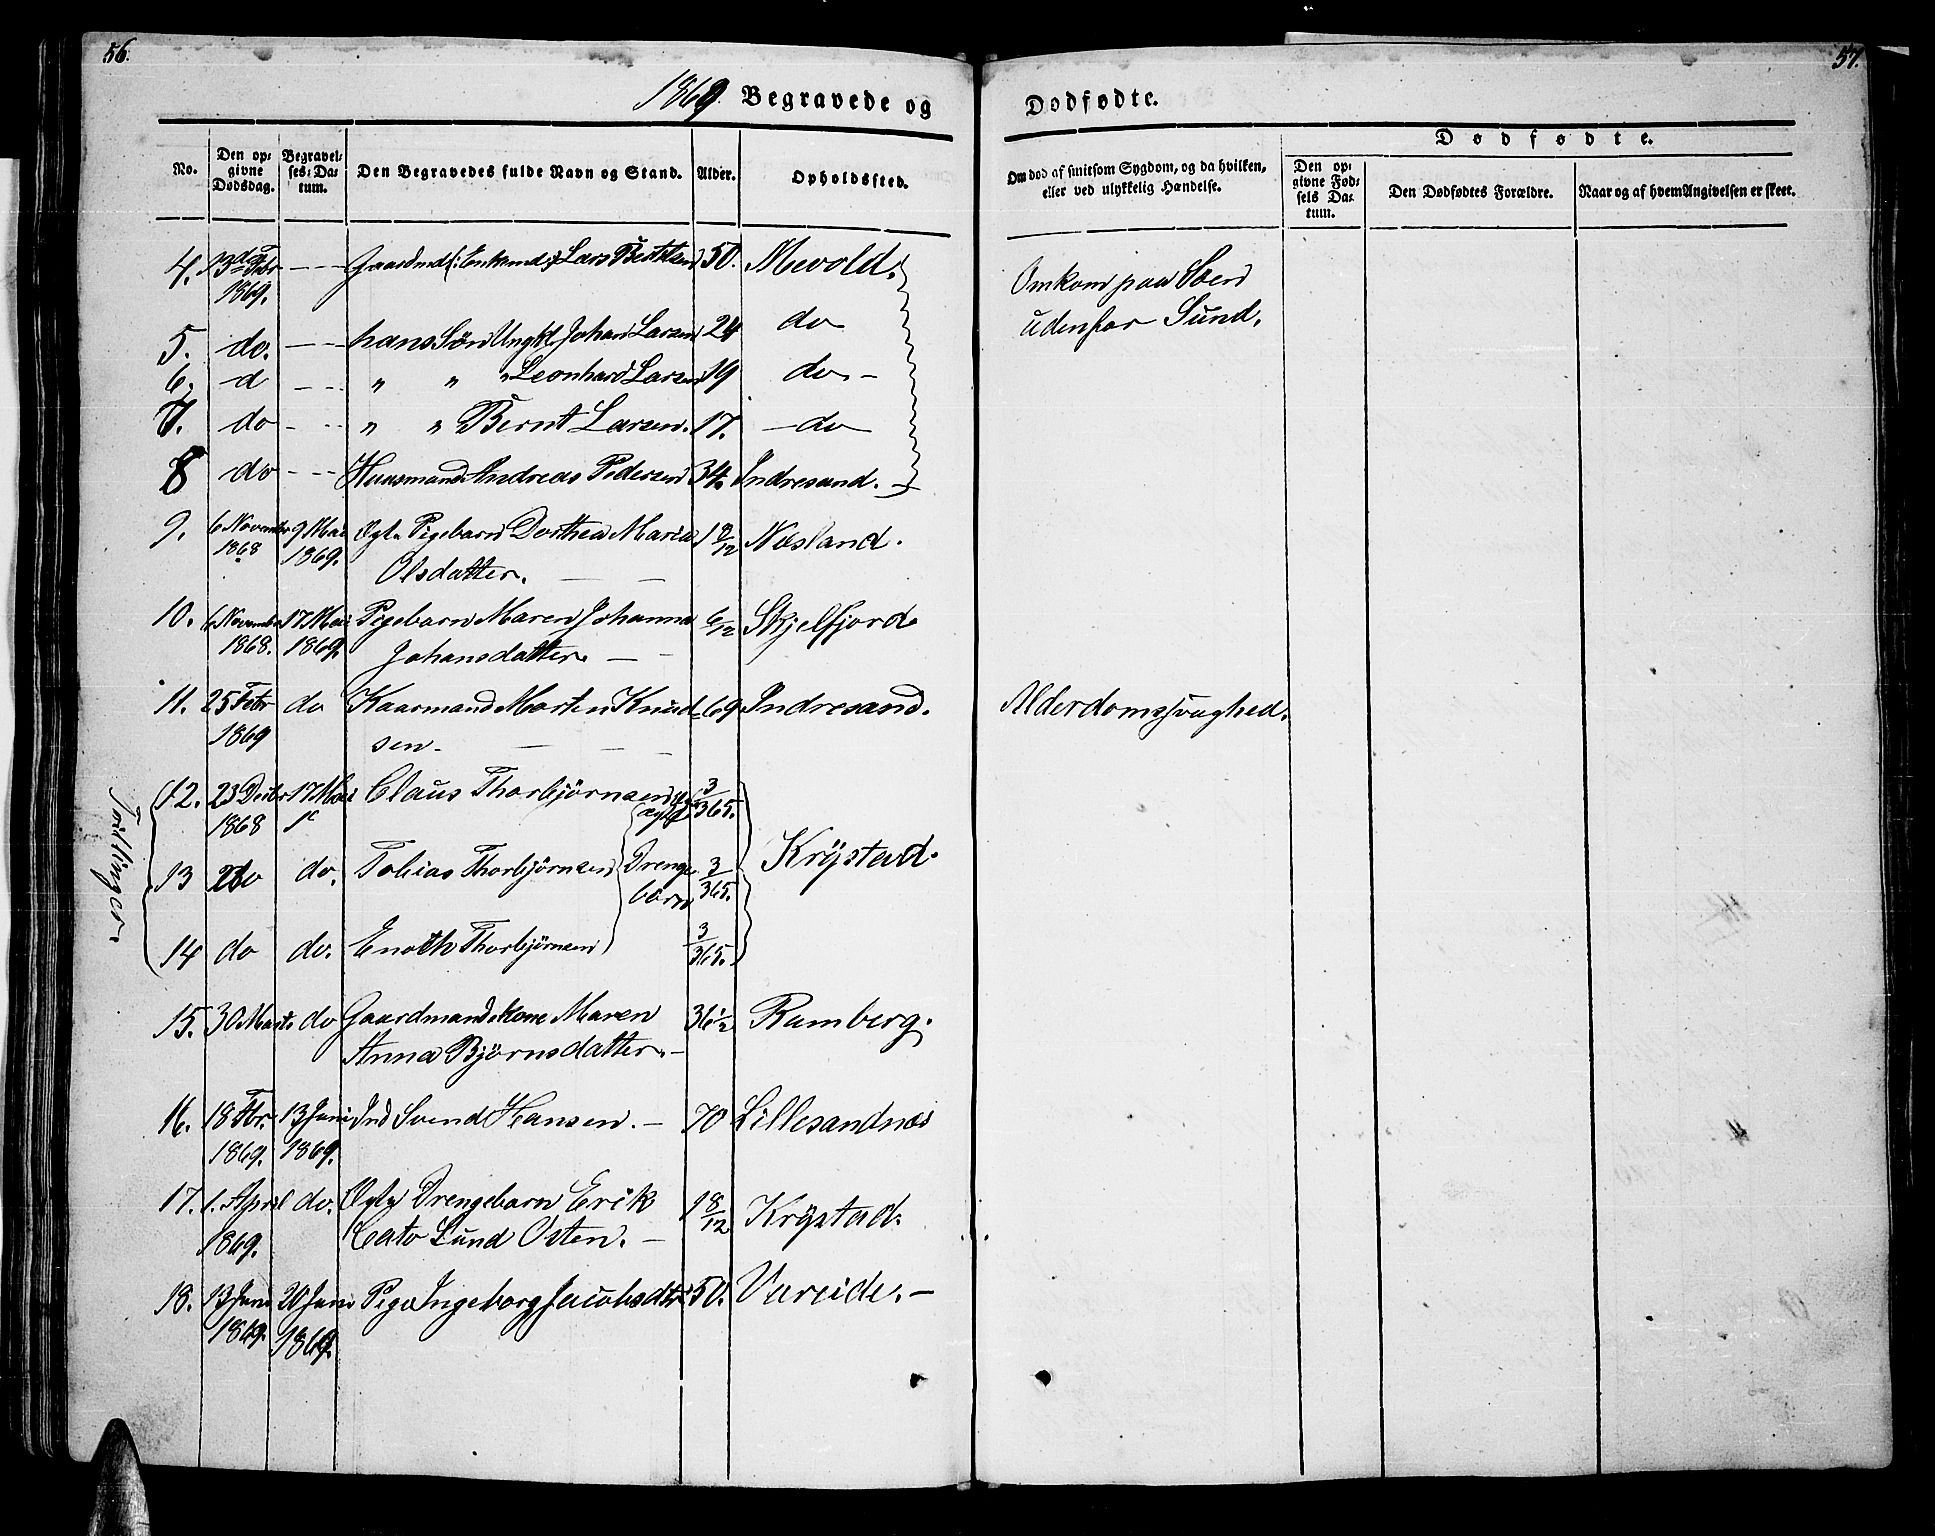 56.
57.
1869. Begravede og
Dødfødte.
No.
Den opgivne Dødsdag.
Begravelses-Datum.
Den Begravedes fulde Navn og Stand.
Alder.
Opholdssted.
Om død af smitsom Sygdom, og da hvilken, eller ved ulykkelig Hændelse.
Dødfødte.
Den opgivne Fødsels Datum.
Den Dødfødtes Forældre.
Naar og af hvem Angivelsen er skeet.
4. 13de Febr — Gaardmd (: Enkemd :) Lars Bertelsen 50. Mevold. Omkom paa Søen
1869. udenfor Sund.
5. do. — hans Søn Ungkl Johan Larsen 24 do
6. d — " " " Leonhard Larsen 19 do. —
7. do — " " Bernt Larsen. 17. — do
8 do — Huusmand Andreas Pedersen 34. Indresand. —
9. 6 November 9 Mai Ægte Pigebarn Dorthea Maria 1 8/12 Nusland.
1868 1869. Olsdatter. — —
10. 6 November 17 Mai Pigebarn Maren Johanna 6/12 Skjelfjord
1868. 1869. Johansdatter. — —
11. 25 Febr do Kaarmand Morten Knud- 69 Indresand. Alderdomssvaghed.
1869 sen. — — —
Trillinger.
12. 23 Decbr 17 Mai Claus Thorbjørnsen ægte 3/365.
1868
13 do do. Tobias Thorbjørnsen Drenge 3/365. Krystad.
børn
14 do do. Enoch Thorbjørnsen 3/365.
15. 30 Marts do Gaardmandskone Maren 36 1/2 Ramberg.
Anna Bjørnsdatter. —
16. 18 Fbr. 13 Juni Ind Svend Hansen. — 70 Lillesandnes
1869. 1869.
17. 1. April do. Ægte Drengebarn Erik 1 8/12 Krystad.
1869. Cato Lund Osten. —
18. 13 Juni 20 Juni Pige Ingeborg Jacobsdtr 50. Vareide. —
1869. 1869.